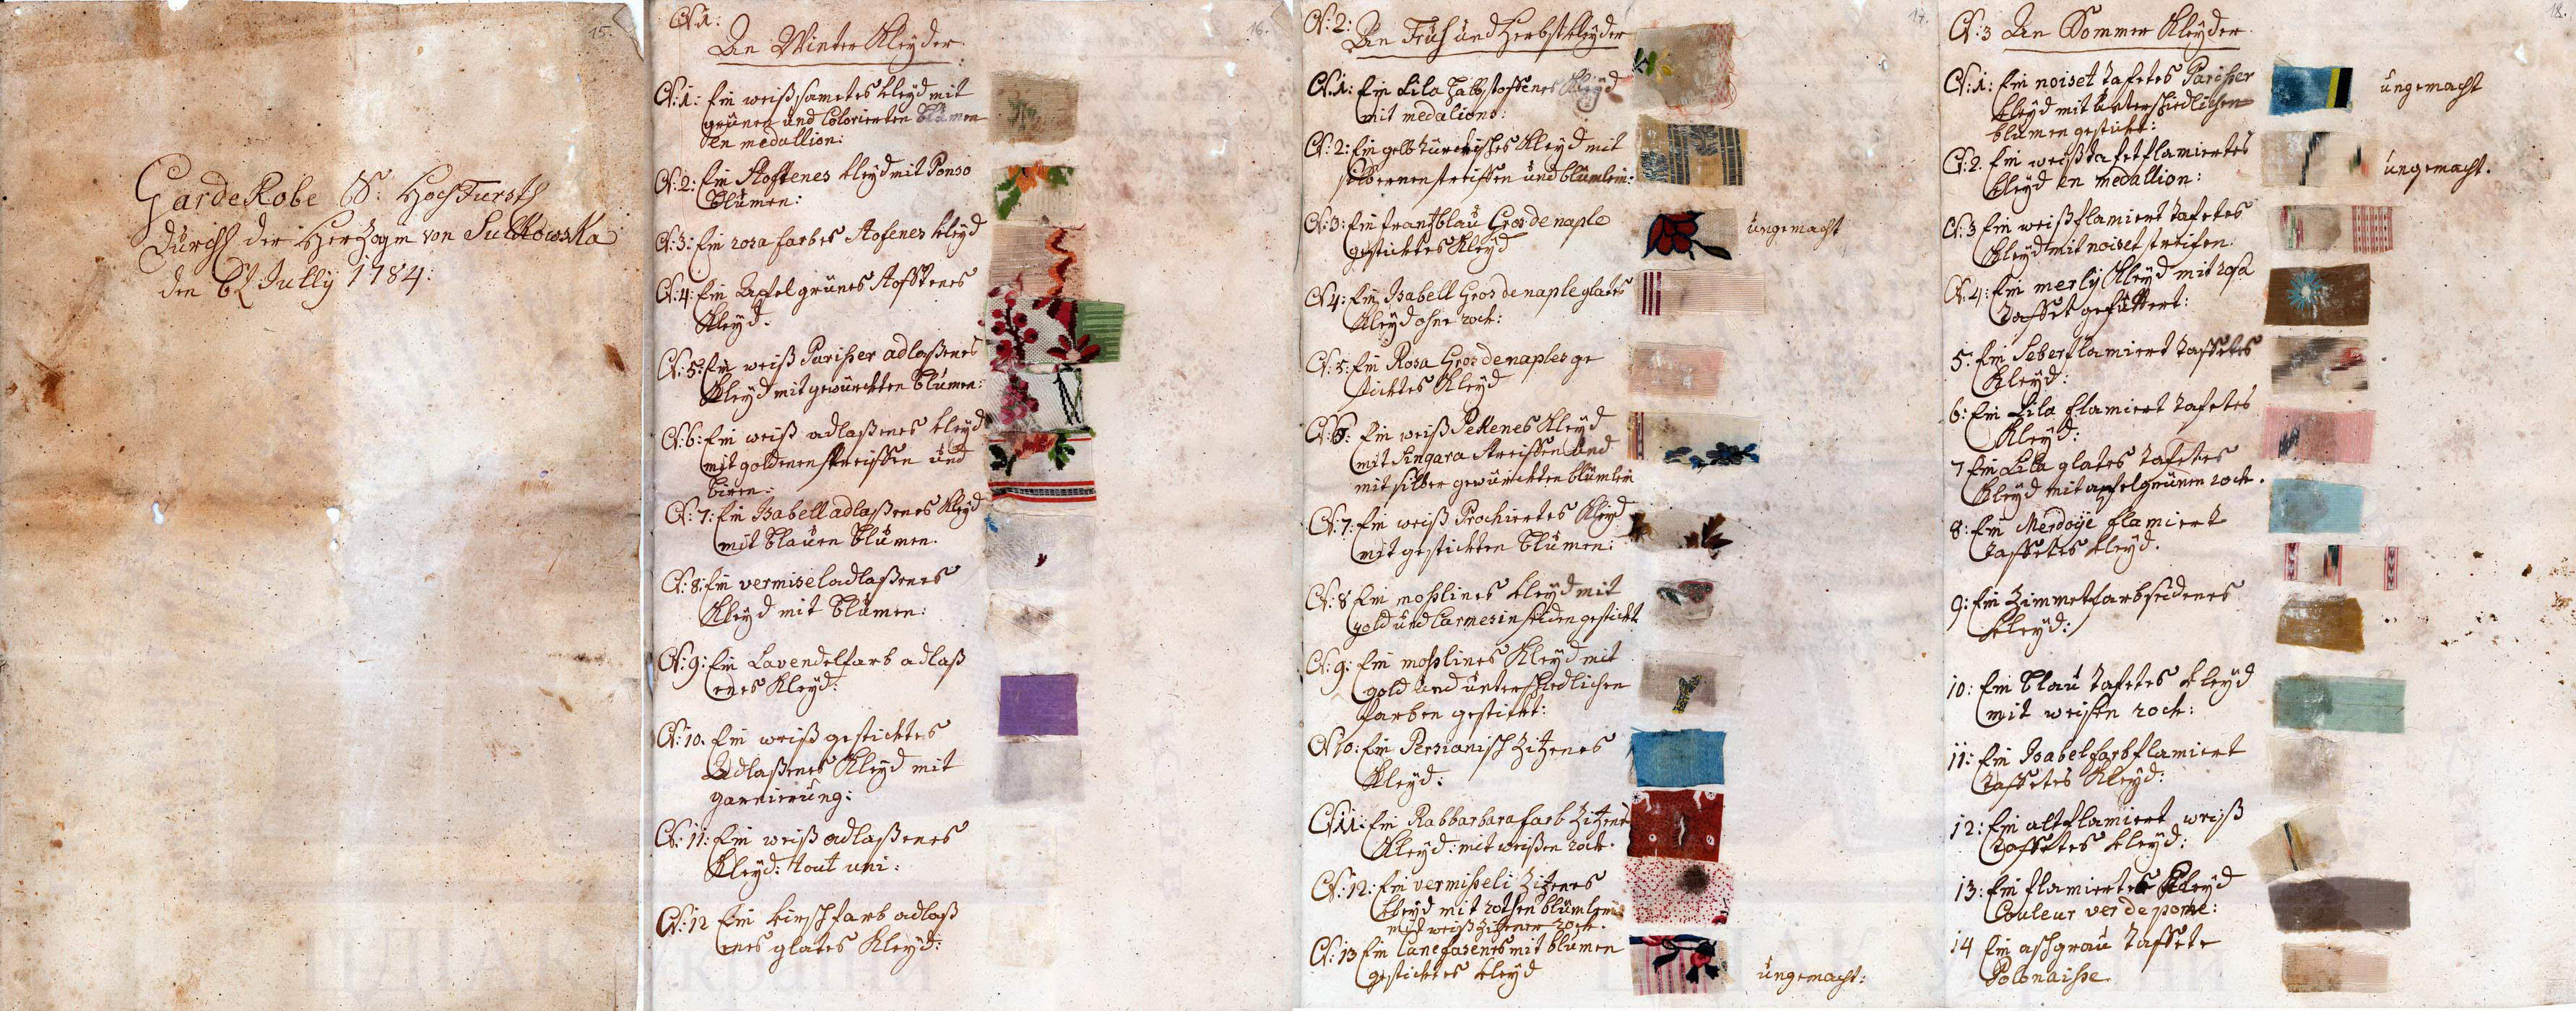 15.
GardeRobe S: HochFurstl
Durchl der Herzogin von Sulkowska
den 6t Jully 1784:
16.
N:1:
An Winter Kleyder:
N:1: Ein weiß sametes kleyd mit
grünen und Colorierten Blumen
en medallion:
N:2: Ein Stoffenes kleyd mit Ponso
Blumen:
N:3: Ein rosa farbes Stofenes kleyd
N:4: Ein Apfel grünes Stofftenes
Kleyd.
N:5: Ein weiß Pariser adlaßenes
Kleyd mit gewürckten Blumen:
N:6: Ein weiß adlaßenes kleyd
mit goldenen streiffen und
N:7: Ein Isabell adlaßenes Kleyd
mit Blauen Blumen.
N:8: Ein vermisel adlaßenes
Kleyd mit Blumen:
N:9: Ein Lavendelfarb adlaß
enes Kleyd:
N:10. Ein weiß gesticktes
Adlaßenes Kleyd mit
garnierung:
N:11: Ein weiß adlaßenes
Kleyd: tout uni:
N:12 Ein kirschfarb adlaß
enes glates Kleyd:
17.
N:2:
An Früh und Herbst kleyder
N:1: Ein Lila halbstoffenes Kleyd
mit medalions:
N:2: Ein gelb türckisches Kleyd mit
silbernen streiffen und blümlein:
N:3: Ein frantzblau Gros de naple
gesticktes Kleyd
ungemacht
N:4: Ein Isabell Gros de naple glates
Kleyd ohne rock:
N:5: Ein Rosa Gros de naples ge
sticktes Kleyd
N:6: Ein weiß Pekenes Kleyd
mit Singara streiffen und
mit silber gewürckten blümlein
N:7: Ein weiß Prochiertes Kleyd
mit gestickten Blumen:
N:8 Ein moßlines kleyd mit
gold und Carmesin seiden gestickt
N:9: Ein moßlines Kleyd mit
gold und unterschiedlichen
farben gestickt:
N:10: Ein Persianisch Zitzenes
Kleyd:
N:11: Ein Rabbarbarafarb Zitzenes
Kleyd: mit weißen rock.
N:12: Ein vermißeli Zitzenes
kleyd mit rothen blümlein
mit weiß Zitzenen rock.
N:13 Ein Canefasenes mit blumen
gesticktes kleyd
ungemacht:
18.
N:3 An Sommer Kleyder
N:1: Ein noiset tafetes Pariser
kleyd mit unterschiedlichen
blumen gestickt:
ungemacht
N:2. Ein weiß tafet flamiertes
kleyd en medallion:
ungemacht.
N:3 Ein weiß flamiert tafetes
Kleyd mit noiset streifen.
N:4: Ein merly Kleyd mit rosa
Taffet gefüttert:
5: Ein Leberflamiert taffetes
Kleyd:
6: Ein Lila flamiert tafetes
Kleyd:
7 Ein Lila glates tafetes
Kleyd mit apfelgrünen rock.
8: Ein Merdoye flamiert
taffetes kleyd.
9: Ein Zimmetfarb seidenes
kleyd:
10: Ein blau tafetes kleyd
mit weißen rock:
11: Ein Isabelfarb flamiert
taffetes Kleyd:
12: Ein alt flamiert weiß
taffetes kleyd:
13: Ein flamiertes Kleyd
Couleur ver de pome:
14 Ein aschgrau taffete
Polonaisse